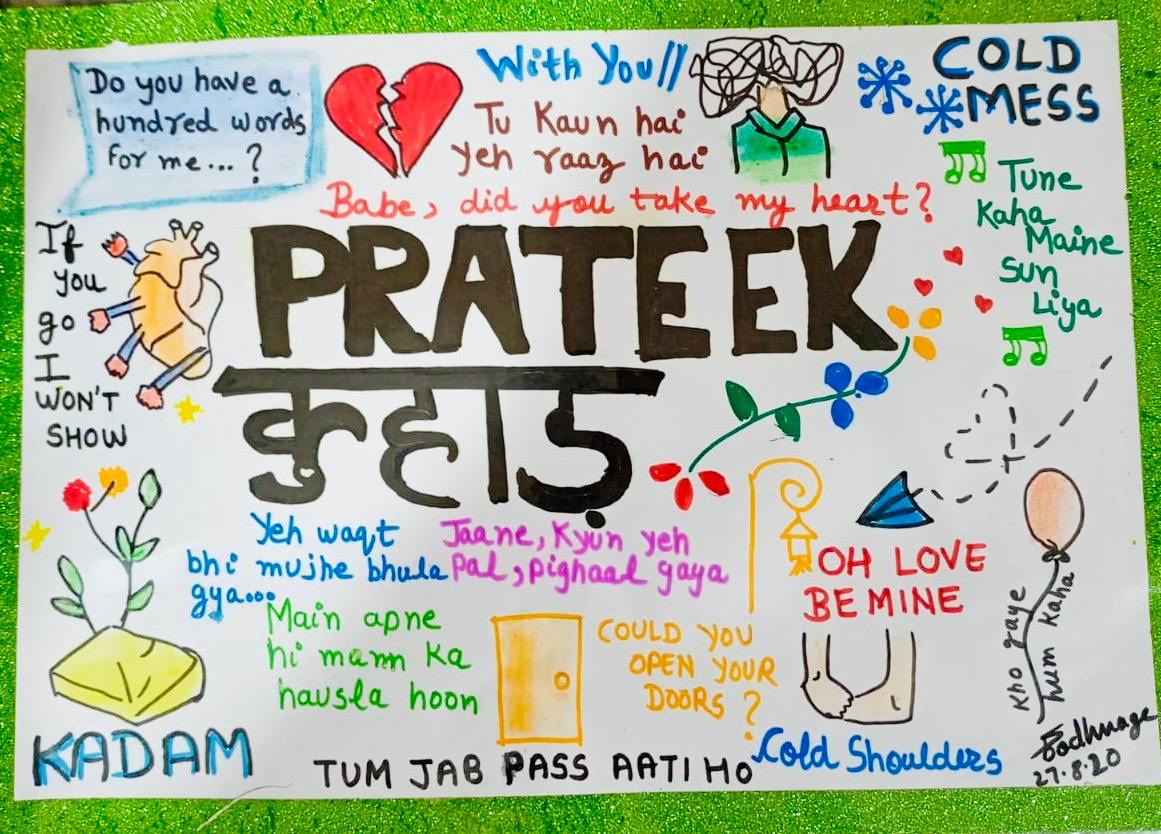 Do you have a
hundred words
for me...?
With You//
Tu Kaun hai
yeh raaz hai
COLD
MESS
Babe, did you take my heart?
Tune
Kaha
Maine
Sun
Liya
If
you
go
I
WON'T
SHOW
PRATEEK
कुहाड़
Yeh waqt
bhi mujhe bhula
gya...
Jaane, Kyun yeh
pal, pighaal gaya
Main apne
hi mann ka
hausla hoon
COULD YOU
OPEN YOUR
DOORS ?
OH LOVE
BE MINE
Kho gaye
hum kaha
KADAM
TUM JAB PASS AATI HO
Cold Shoulders
27.8.20